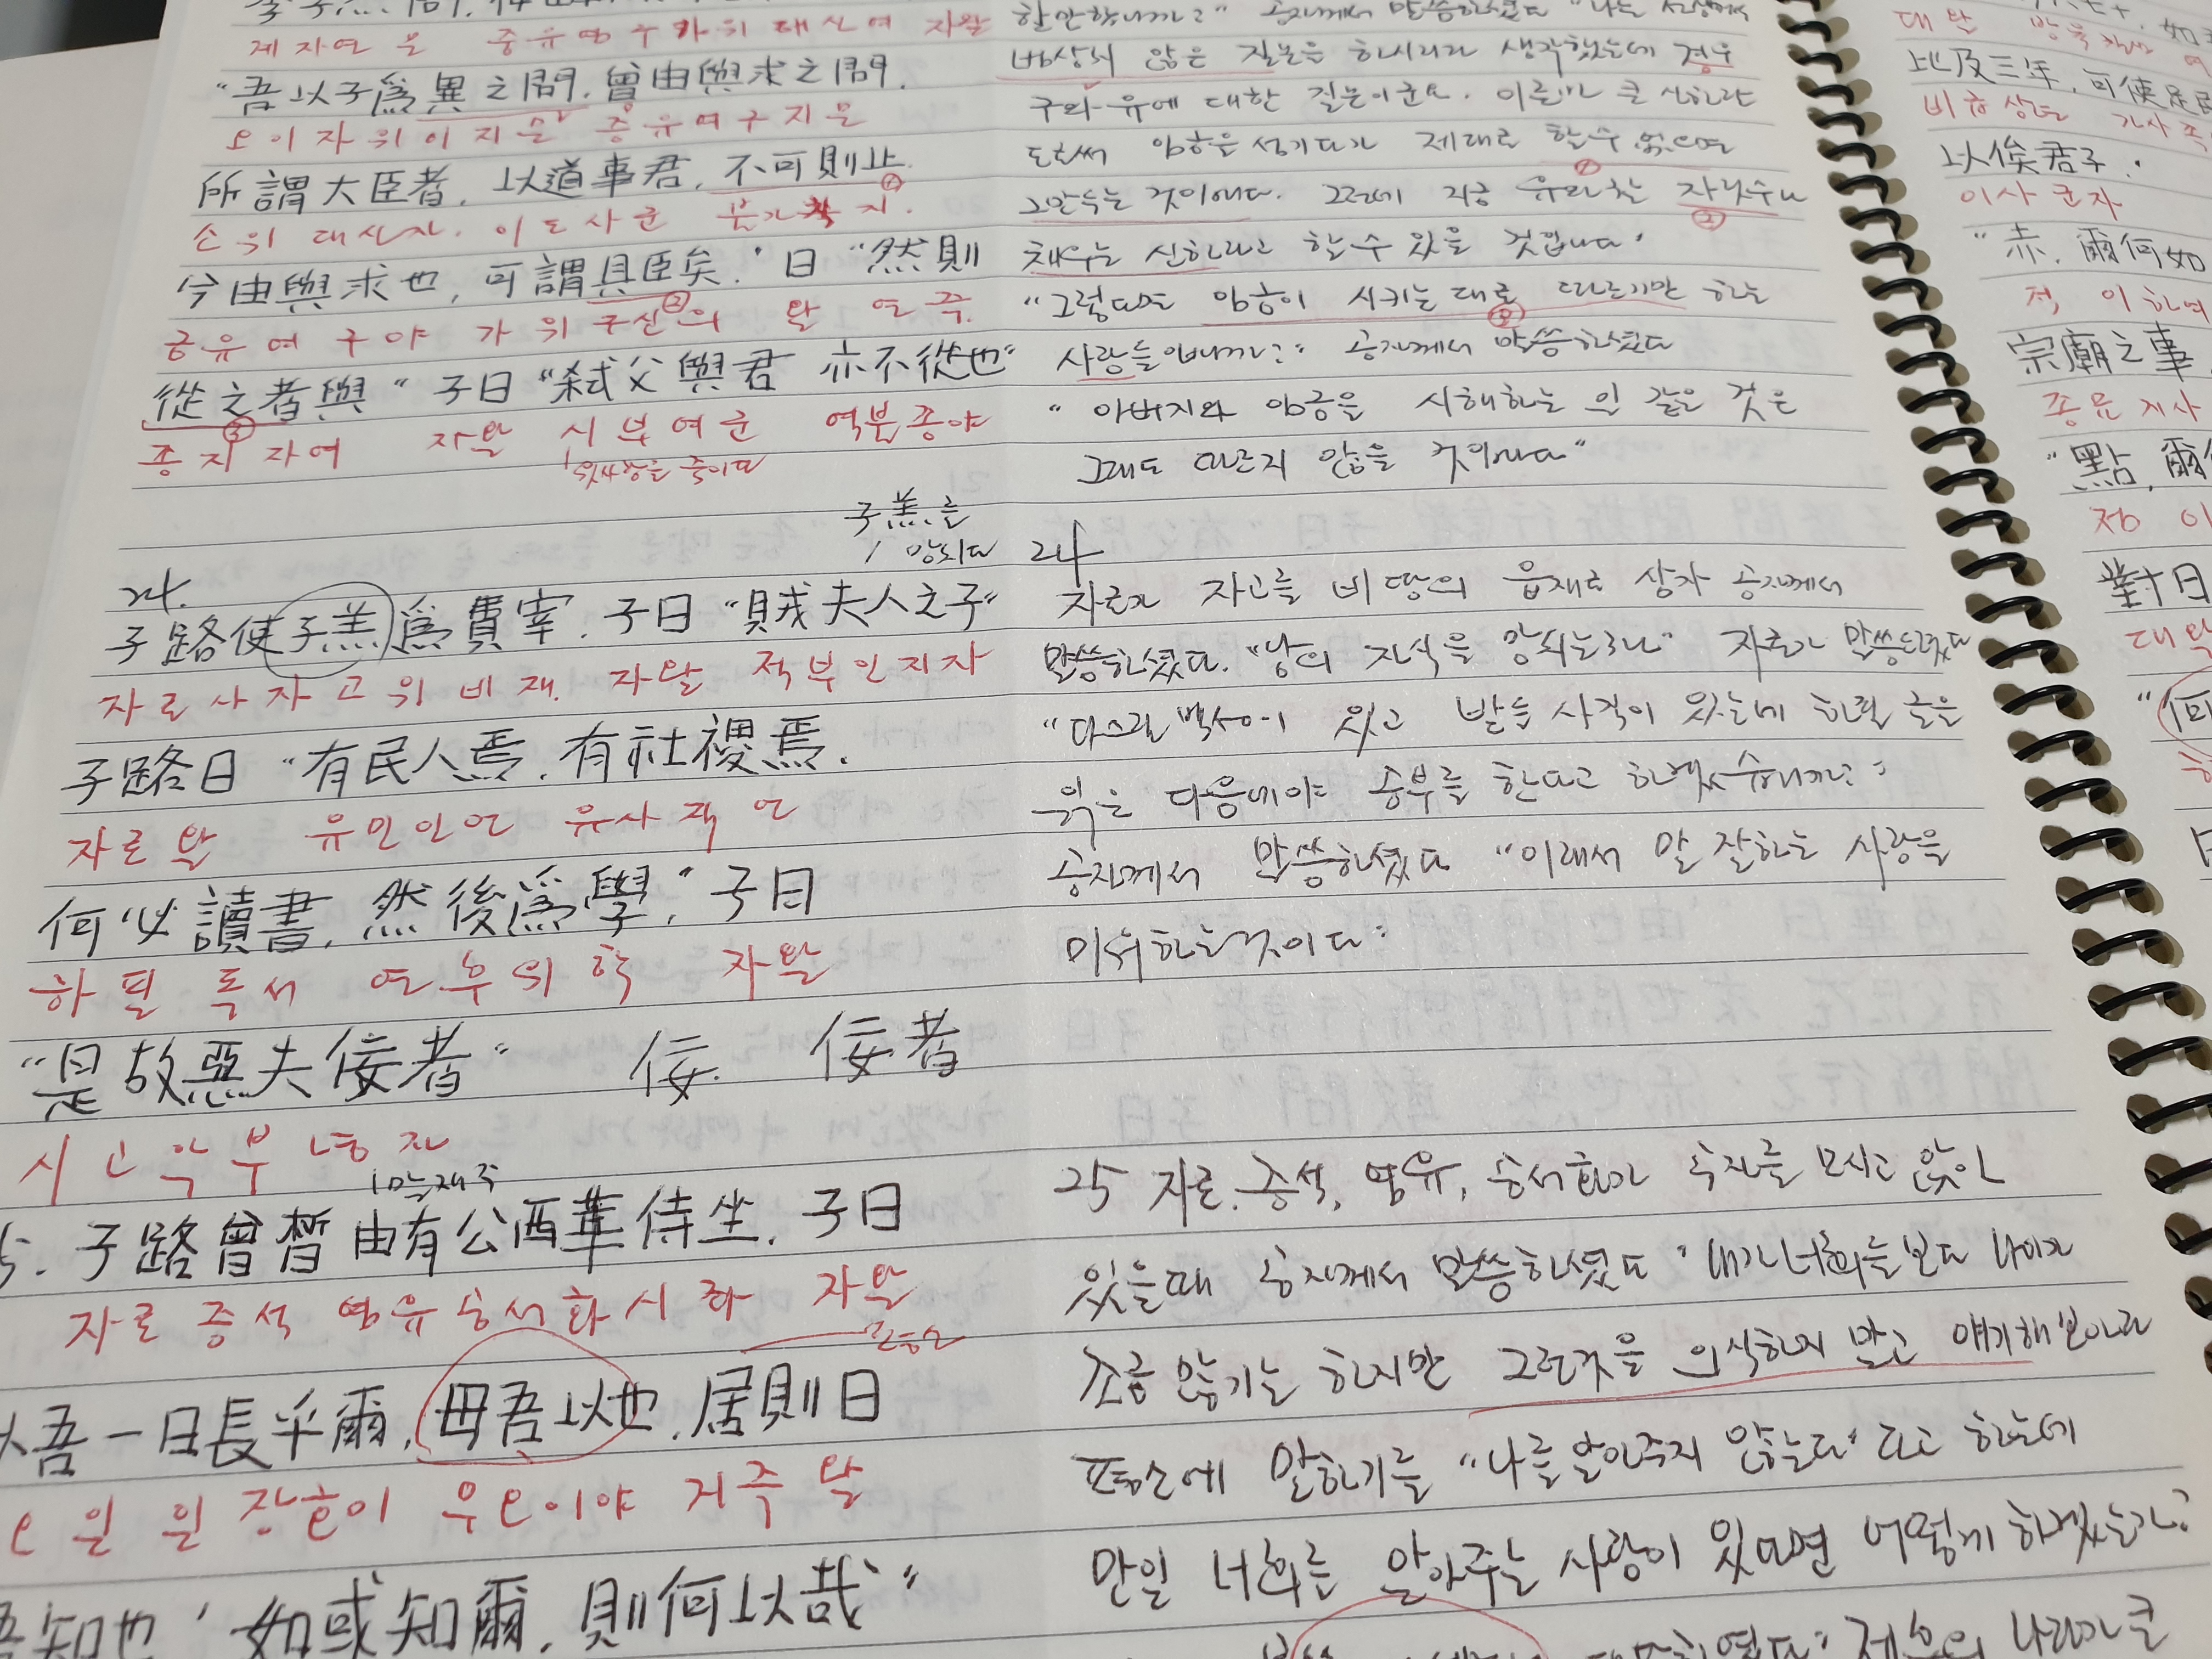 제자연문 중유염구가위대신여 자왈
"吾以子爲異之問, 曾由與求之問.
오이자위이지문 증유여구지문
所謂大臣者, 以道事君, 不可則止.
소위 대신자. 이도사군 불가즉지.
今由與求也, 可謂具臣矣." 曰 "然則
금유여구야 가위구신의 왈 연즉
從之者與" 子曰 "弑父與君 亦不從也"
종지자여 자왈 시부여군 역부종야
윗사람을 죽이다
할만합니까?" 공자께서 말씀하셨다 "나는
범상치 않은 질문을 하시리라 생각했는데 겨우
구와 유에 대한 질문이군요. 이른바 큰 신하란
도로써 임금을 섬기다가 제대로 할수 없으면
그만두는 것이니다. 그런데 지금 유와 구는 자릿수나
채우는 신하라고 할수 있을 것입니다"
"그렇다면 임금이 시키는 대로 따르기만 하는
사람들입니까?" 공자께서 말씀하셨다
"아버지와 임금을 시해하는 일 같은 것은
그래도 따르지 않을 것입니다"
子羔를
망치다
24.
子路使子羔爲費宰. 子曰 "賊夫人之子"
자로사자고위비재. 자왈 적부인지자
子路曰 "有民人焉, 有社稷焉.
자로왈 유민인언 유사직언
何必讀書, 然後爲學," 子曰
하필독서 연후위학 자왈
"是故惡夫佞者" 佞. 佞者
시고악부녕자
말재주
24
자로가 자고를 비 땅의 읍재로 삼자 공자께서
말씀하셨다. "남의 자식을 망치는구나" 자로가 말씀드렸다
"다스릴 백성이 있고 받들 사직이 있는데 하필 글을
읽은 다음에야 공부를 한다고 하겠습니까?"
공자께서 말씀하셨다 "이래서 말 잘하는 사람을
미워하는것이다"
5. 子路曾晳由有公西華侍坐. 子曰
자로증석 염유공서화시좌 자왈
以吾一日長乎爾, 毋吾以也. 居則曰
오일일장호이 무오이야 거즉왈
吾知也' 如或知爾, 則何以哉"
25 자로. 증석, 염유, 공서화가 공자를 모시고 앉아
있을때 공자께서 말씀하셨다 "내가 너희들보다 나이가
조금 많기는 하지만 그런것을 의식하지 말고 얘기해보아라
평소에 말하기를 "나를 알아주지 않는다" 라고 하는데
만일 너희를 알아주는 사람이 있다면 어떻게 하겠는가?
제후의 나라가 큰
比及三年, 可使足民
비급삼년 가사족
以俟君子.
이사군자
"赤, 爾何如
적, 이하여
宗廟之事,
종묘지사
"點, 爾何
점 이
對曰
대왈
"何